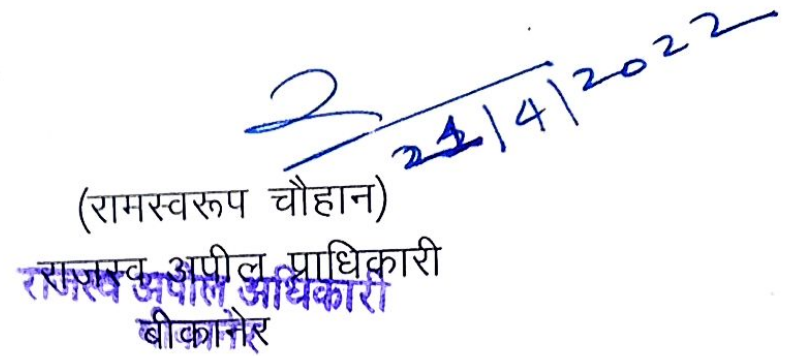 21/4/2022
(रामस्वरूप चौहान)
राजस्व अपील प्राधिकारी
राजस्व अपील अधिकारी
बीकानेर